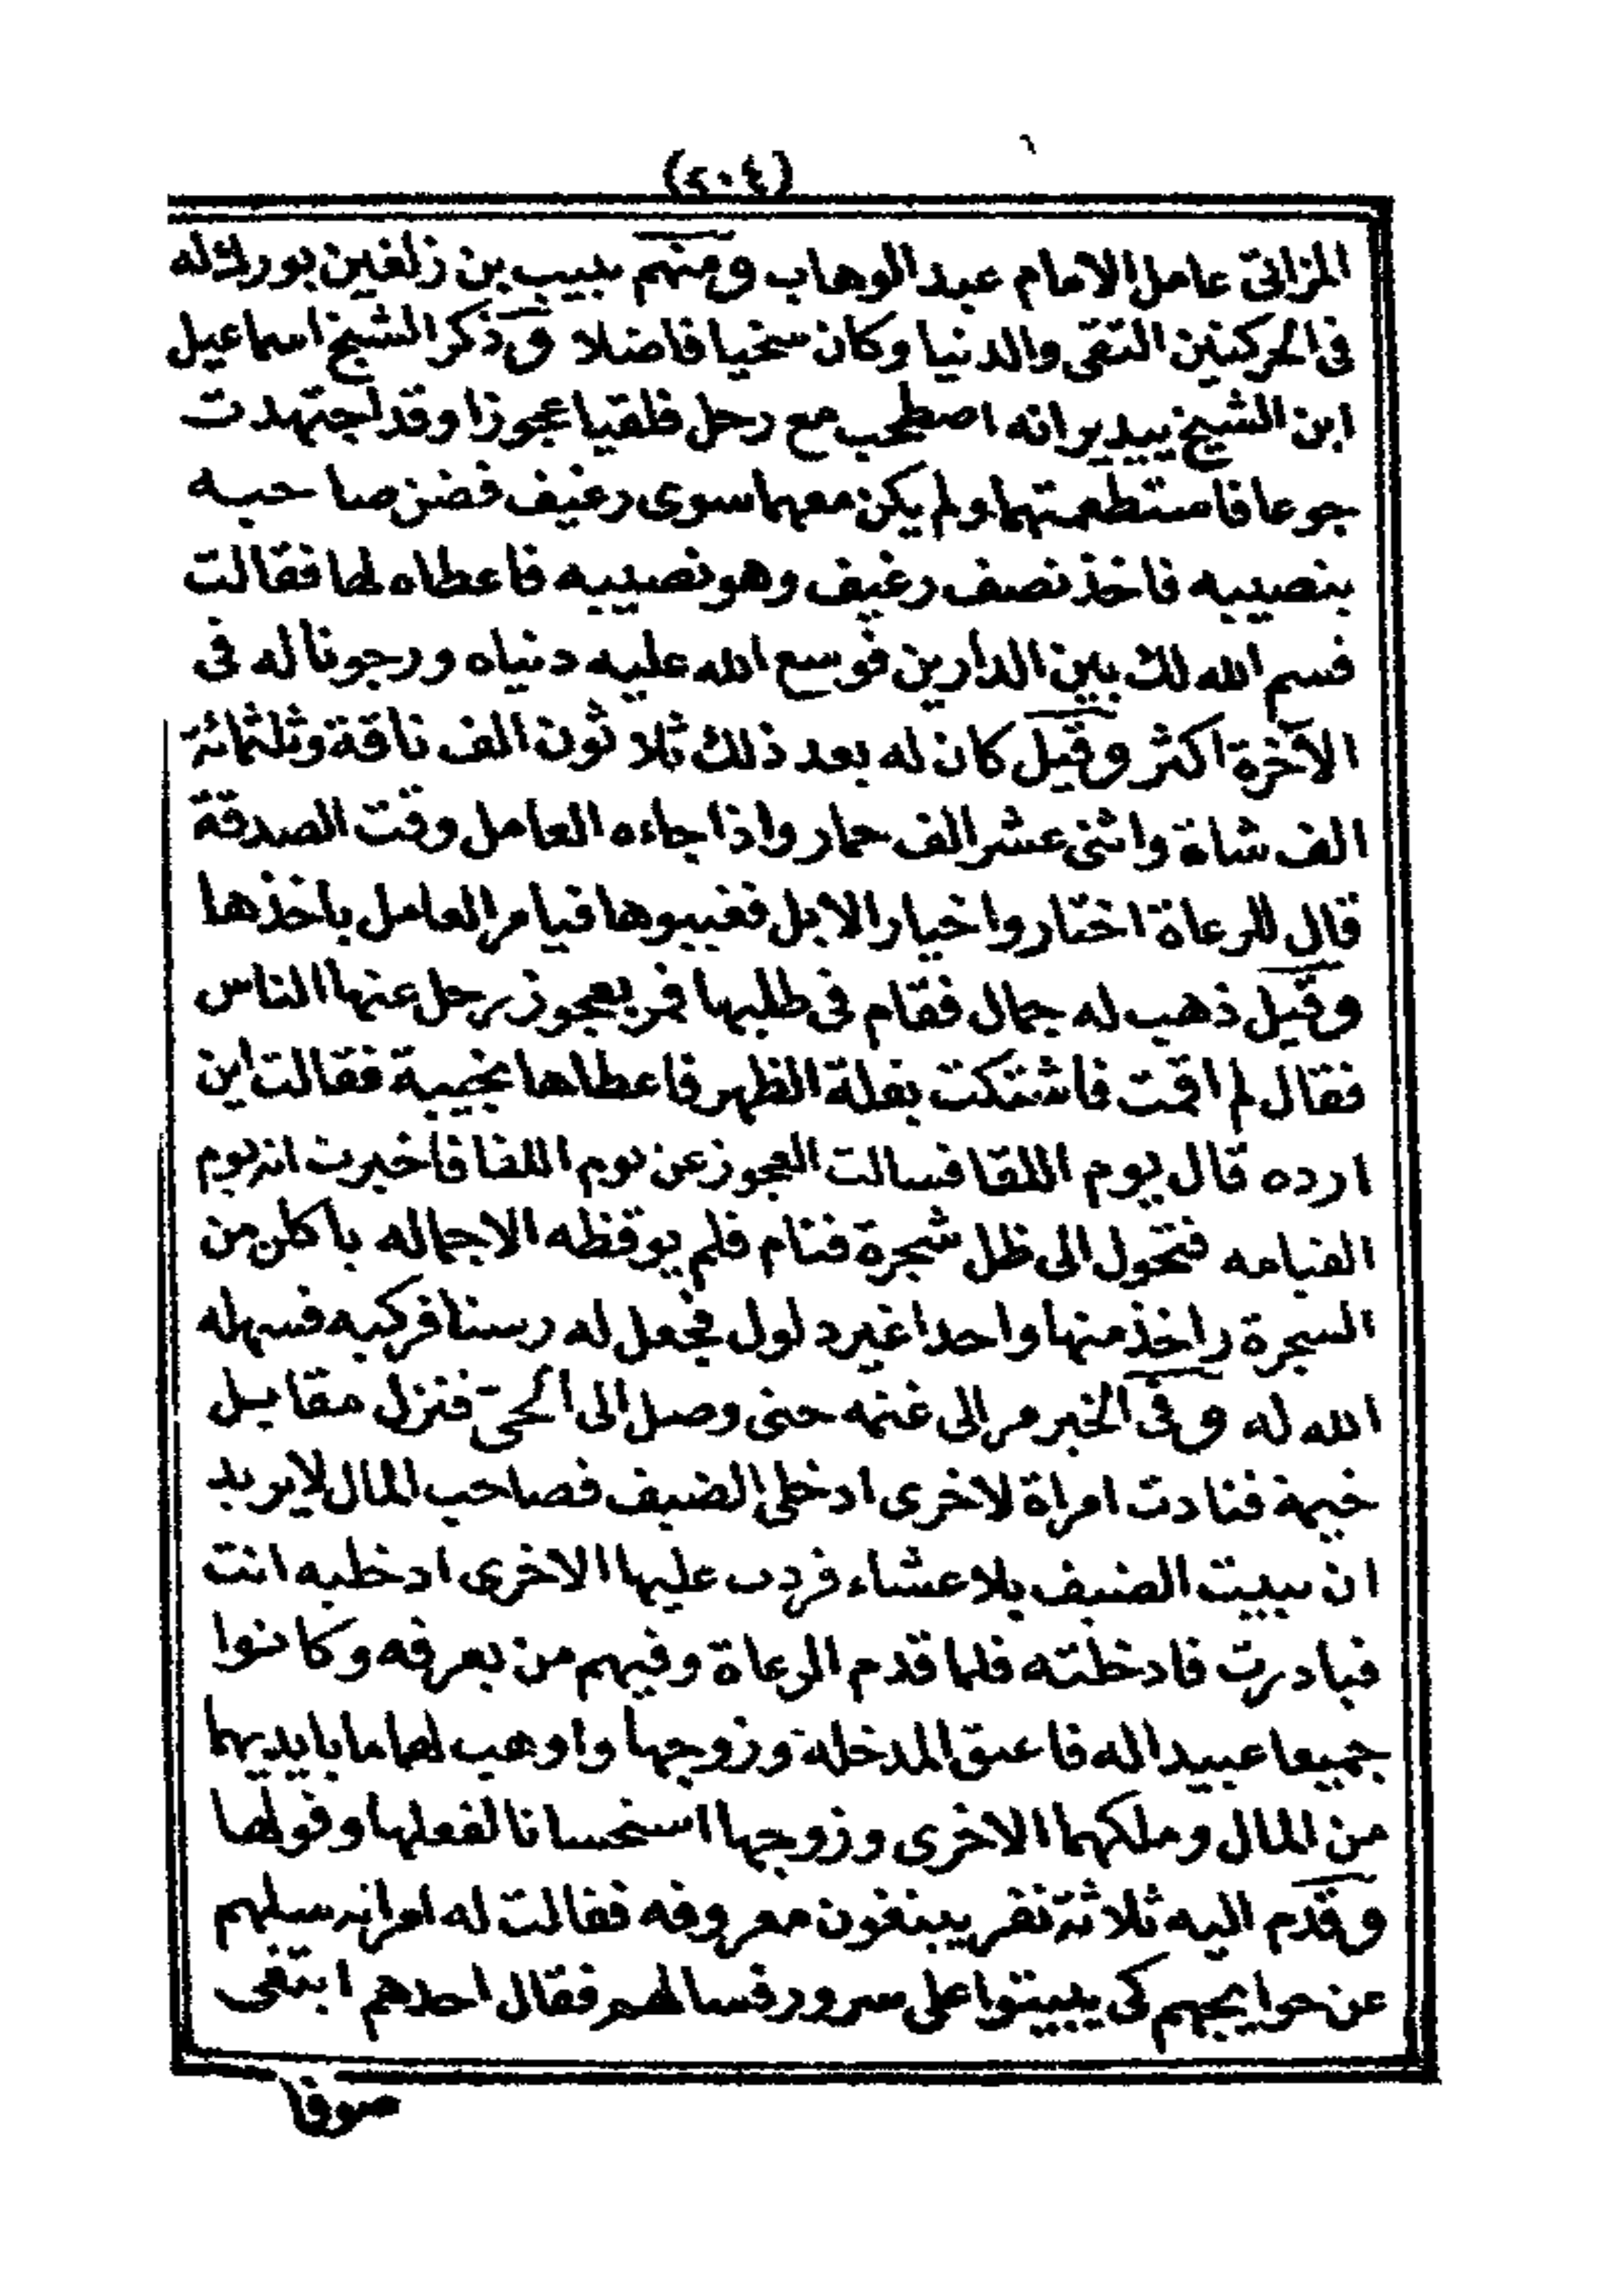 (٢٠٤)
المزاتى عامل الامام عبد الوهاب ومنهم يبيب بن زلغين بورك له
فى الحركتين التقى والدنيا وكان سخيا فاضلا وذكر الشيخ اسماعيل
ابن الشيخ ييدير انه اصطحب مع رحل فلقيا عجوزا وقد اجتهدت
جوعا فاستطعمتهما ولم يكن معهما سوى رغيف فضن صاحبه
بنصيبه فاخذ نصف رغيف وهو نصيبه فاعطاه لها فقالت
قسم الله لك بين الدارين فوسع الله عليه دنياه ورجونا له فى
الآخرة اكثر وقيل كان له بعد ذلك ثلاثون الف ناقة وثلثمائة
الف شاة واثنى عشر الف حمار واذا جاءه العامل وقت الصدقة
قال للرعاة اختاروا خيار الابل فغيبوها فيامر العامل باخذها
وقيل ذهب له جمال فقام فى طلبها فمر بعجوز رحل عنها الناس
فقال لم اقمت فاشتكت بقلة الظهر فاعطاها نجيبة فقالت اين
ارده قال يوم اللقا فسالت العجوز عن يوم اللقا فاخبرت انه يوم
القيامه فتحول الى ظل شجرة فنام فلم يوقظه الا جماله ياكلن من
السجرة واخذ منها واحدا غير دلول فجعل له رسنا فركبه فسهله
الله له وفى الخبر مر الى غنمه حتى وصل الى الحى فنزل مقابل
خيمة فنادت امراة لاخرى ادخلى الضيف فصاحب المال لا يريد
ان يبيت الضيف بلا عشاء فردت عليها الاخرى ادخليه انت
فبادرت فادخلته فلما قدم الرعاة وفيهم من يعرفه وكانوا
جميعا عبيدا له فاعتق المدخلة وزوجها واوهب لهما ما بايديهما
من المال وملكهما الاخرى وزوجها استحسانا لفعلها وقولها
وقدم اليه ثلاثة نفر يبتغون معروفه فقالت له امراته سلهم
عن حوايجهم كى يبيتوا على سرور فسالهم فقال احدهم ابتغى
صوفا